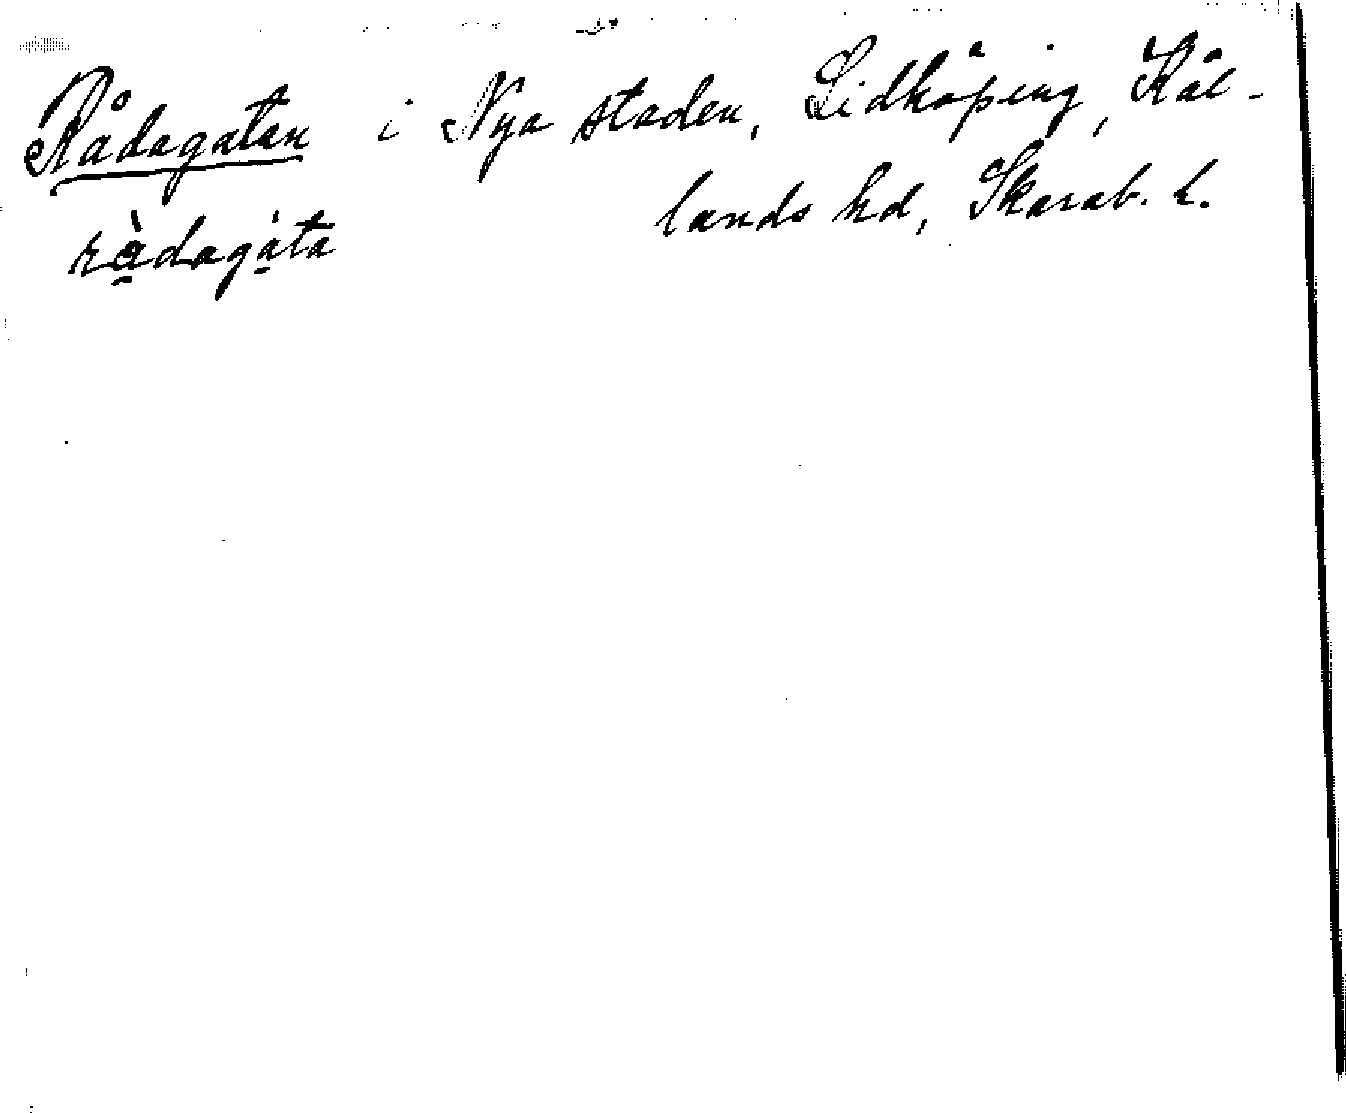 Rådagatan i Nya staden, Lidköping, Kål-
lands hd, Skarab. l.
rådagáta